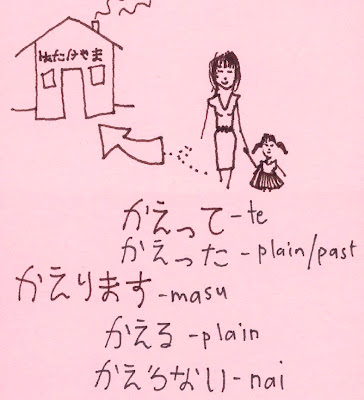 はたけやま
かえって-te
かえった-plain/past
かえります-masu
かえる-plain
かえらない-nai